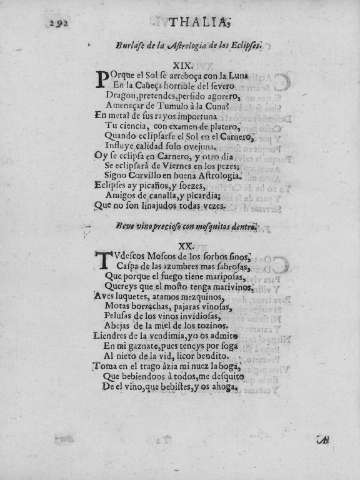 292
THALIA,
Burlase de la Astrologia de los Eclipses.
XIX.
POrque el Sol se arreboça con la Luna
En la Cabeça horrible del severo
Dragon, pretendes, perfido agorero,
Amenaçar de Tumulo à la Cuna?
En metal de sus rayos importuna
Tu ciencia, con examen de platero,
Quando eclipsarse el Sol en el Carnero,
Influye calidad solo ovejuna.
Oy se eclipsa en Carnero, y otro dia
Se eclipsarà de Viernes en los pezes,
Signo Corvillo en buena Astrologia.
Eclipses ay picaños, y soezes,
Amigos de canalla, y picardia;
Que no son linajudos todas vezes.
Beve vino precioso con mosquitos dentro.
XX.
TUdescos Moscos de los sorbos finos,
Caspa de las azumbres mas sabrosas,
Que porque el fuego tiene mariposas,
Quereys que el mosto tenga marivinos.
Aves luquetes, atamos mezquinos,
Motas borrachas, pajaras vinosas,
Pelusas de los vinos invidiosas,
Abejas de la miel de los tozinos.
Liendres de la vendimia, yo os admito
En mi gaznate, pues teneys por soga
Al nieto de la vid, licor bendito.
Toma en el trago àzia mi nuez la boga,
Que bebiendoos à todos, me desquito
De el vino, que bebistes, y os ahoga.